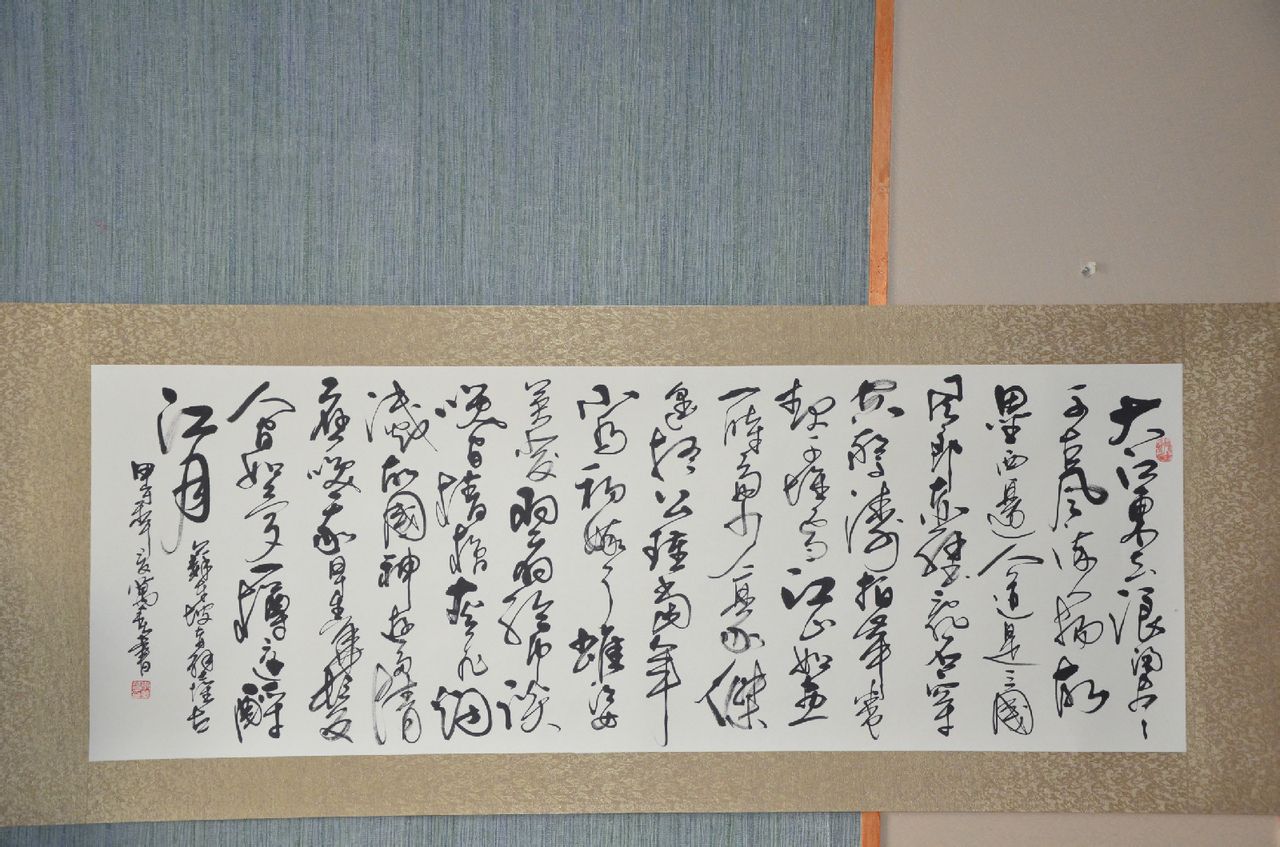 大江東去浪淘盡
千古風流人物故
壘西邊人道是三國
周郎赤壁亂石穿
空驚濤拍岸卷
起千堆雪江山如畫
一時多少豪傑
遙想公瑾當年
小喬初嫁了雄姿
英發羽扇綸巾談
笑間檣櫓灰飛煙
滅故國神遊多情
應笑我早生華髮
人間如夢一樽還酹
江月
蘇東坡赤壁懷古
甲午 書